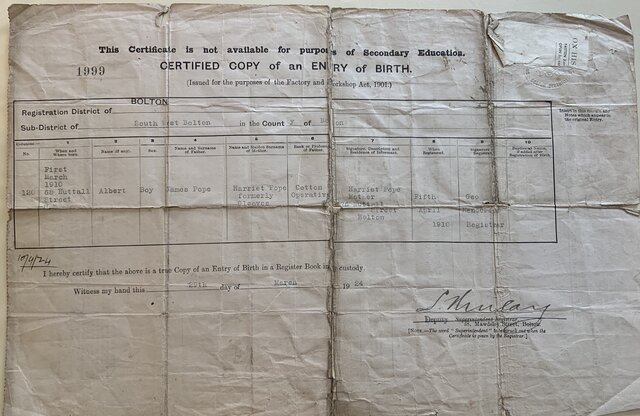 This Certificate is not available for purposes of Secondary Education.
1999
CERTIFIED COPY of an ENTRY of BIRTH.
(Issued for the purposes of the Factory and Workshop Act, 1901.)
Registration District of BOLTON
Sub-District of South West Bolton in the County of Bolton
Insert in this margin any Notes which appear in the original Entry.
Columns:- 1 2 3 4 5 6 7 8 9 10
No. When and Where born. Name if any. Sex. Name and Surname of Father. Name and Maiden Surname of Mother. Rank or Profession Signature, Description and Residence of Informant. When Registered. Signature of Registrar. Baptismal Name, if added after Registration of Birth.
First
March
1910
69 Nuttall
Street
Albert
Boy
James Pope
Harriet Pope
formerly
Cotton
Operative
Harriet Pope
Mother
Street
Bolton
Fifth
April
1910
Geo
Registrar
10/4/24
I hereby certify that the above is a true Copy of an Entry of Birth in a Register Book in my custody.
Witness my hand this day of March 1924
Deputy Superintendent Registrar
Mawdsley Street, Bolton.
[NOTE.—The word "Superintendent" to be struck out when the
Certificate is given by the Registrar.]